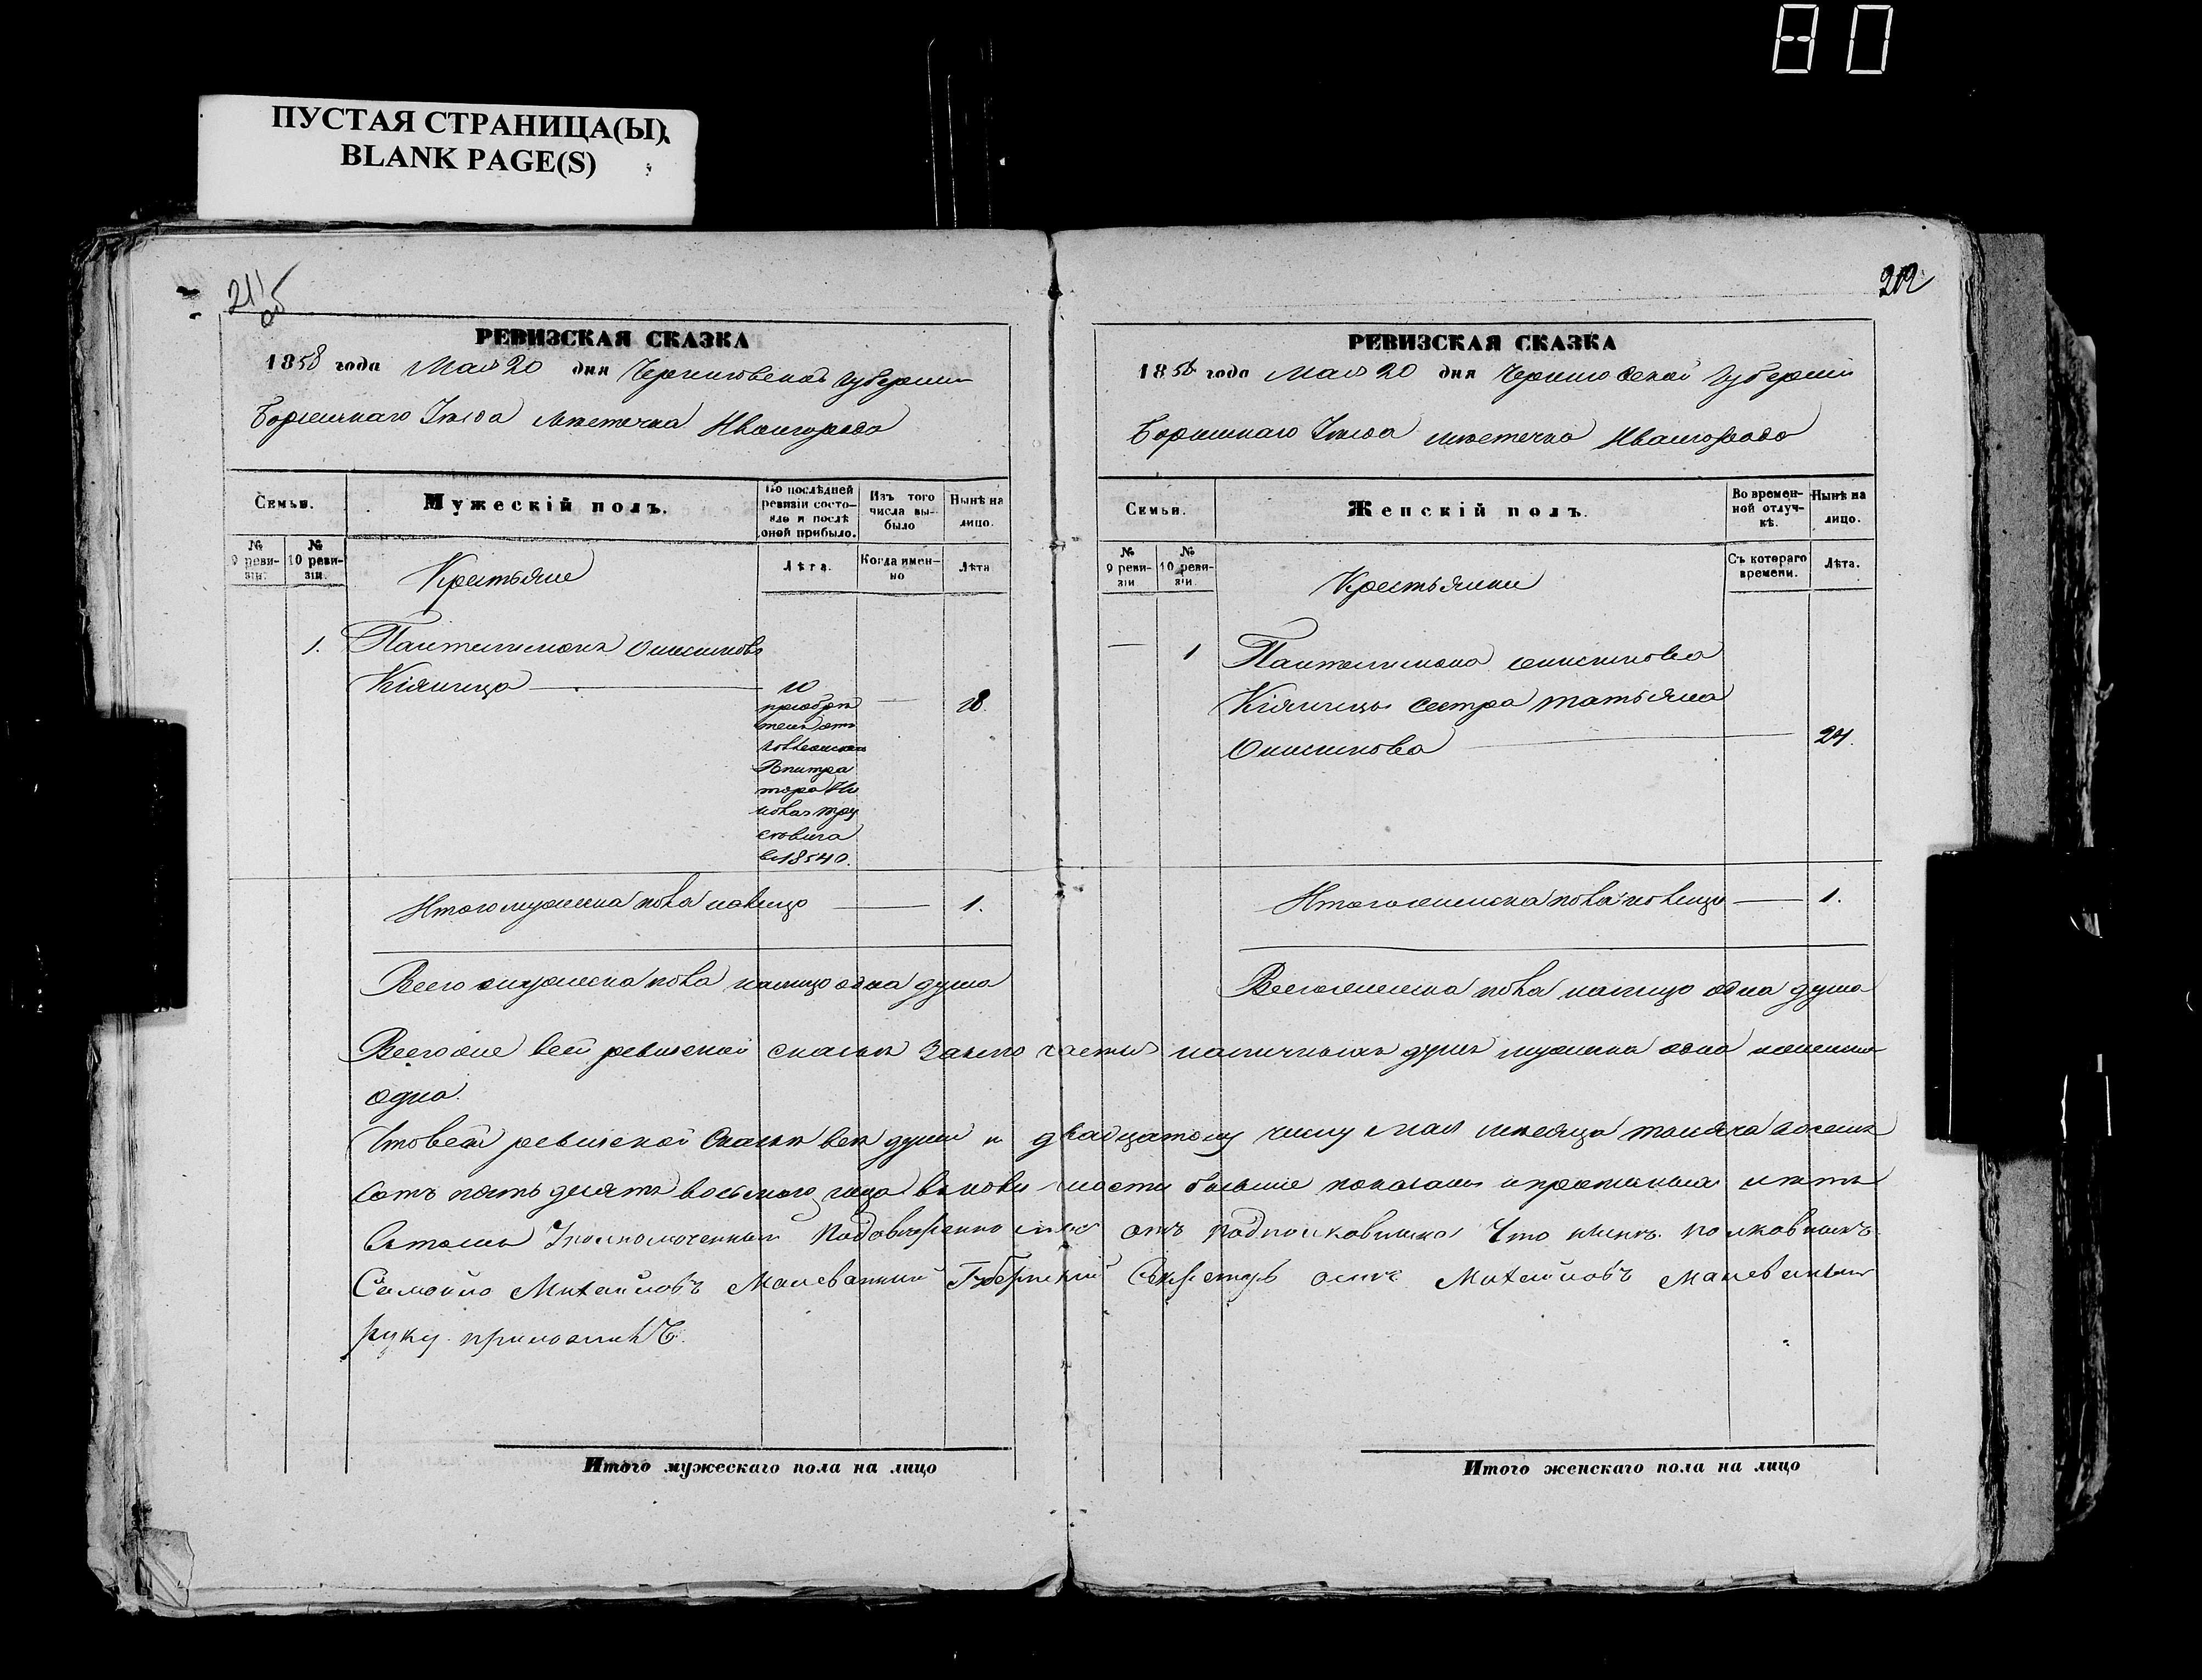 80
ПУСТАЯ СТРАНИЦА(Ы)
BLANK PAGE(S)
211 об
РЕВИЗСКАЯ СКАЗКА
1858 года Мая 20 дня Черниговской губернии
Борзенскаго Уезда местечка Ивангорода
Семьи.
Мужескій полъ.
По послѣдней ревизіи состояло и послѣ оной прибыло.
Изъ того числа выбыло
Нынѣ на лицо.
№ 9 ревизіи.
№ 10 ревизіи.
Крестьяне
Лѣта.
Когда именно
Лѣта
1. Пантелимонъ Онисимовъ
Кіяница — 10 — 18.
въ 1854 г.
Итого мужеска пола налицо — 1.
Всего мужеска пола налицо одна душа
212
РЕВИЗСКАЯ СКАЗКА
1858 года Мая 20 дня Черниговской губернии
Борзенскаго Уезда местечка Ивангорода
Семьи.
Женскій полъ.
Во временной отлучкѣ.
Нынѣ на лицо.
№ 9 ревизіи
№ 10 ревизіи.
Крестьянки
Съ котораго времени.
Лѣта.
— 1 Пантелимона Онисимова
Кіяницы сестра татьяна
Онисимова — 24.
Итого женска пола налицо — 1.
Всего женска пола налицо одна душа
Всего же всей ревизской сказки наличныхъ душъ мужеска одна женска
одна.
Что въ сей ревизской сказки все души к двадцатому числу Мая месяца тысяча восемь
сотъ пятьдесятъ восьмого года
въ томъ Уполномоченный отъ подполковника
Самойло Михайловъ Малеванный Губернский Секретарь Михайловъ Малеванный
руку приложилъ.
Итого мужескаго пола на лицо
Итого женскаго пола на лицо